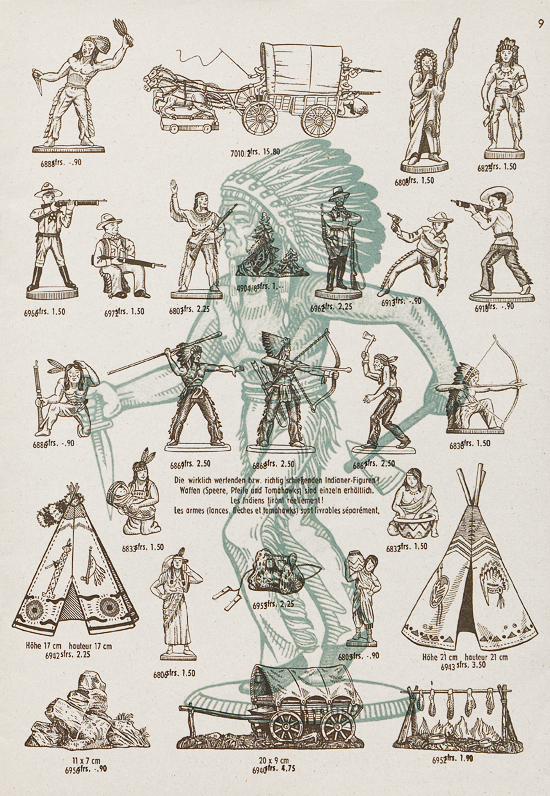 9
6888 sfrs. -.90
7010.2 sfrs. 15,80
6808 sfrs. 1.50
6825 sfrs. 1.50
6966 sfrs. 1.50
6972 sfrs. 1.50
6803 sfrs. 2.25
sfrs. 1.--
6962 sfrs. 2.25
6913 sfrs. -.90
6918 sfrs. -.90
6886 sfrs. -.90
6869 sfrs. 2.50
6868 sfrs. 2.50
sfrs. 2.50
6836 sfrs. 1.50
Die wirklich werfenden bzw. richtig schießenden Indianer-Figuren!
Waffen (Speere, Pfeile und Tomahawks) sind einzeln erhältlich.
Les Indiens tirant réellement!
Les armes (lances, flèches et tomahawks) sont livrables séparément,
6833 sfrs. 1.50
6832 sfrs. 1.50
6953 sfrs. 2,25
Höhe 17 cm hauteur 17 cm
6942 sfrs. 2.25
6806 sfrs. 1.50
6805 sfrs. -.90
Höhe 21 cm hauteur 21 cm
6943 sfrs. 3.50
11 x 7 cm
6956 sfrs. -.90
20 x 9 cm
6940 sfrs. 4,75
6952 sfrs. 1.90